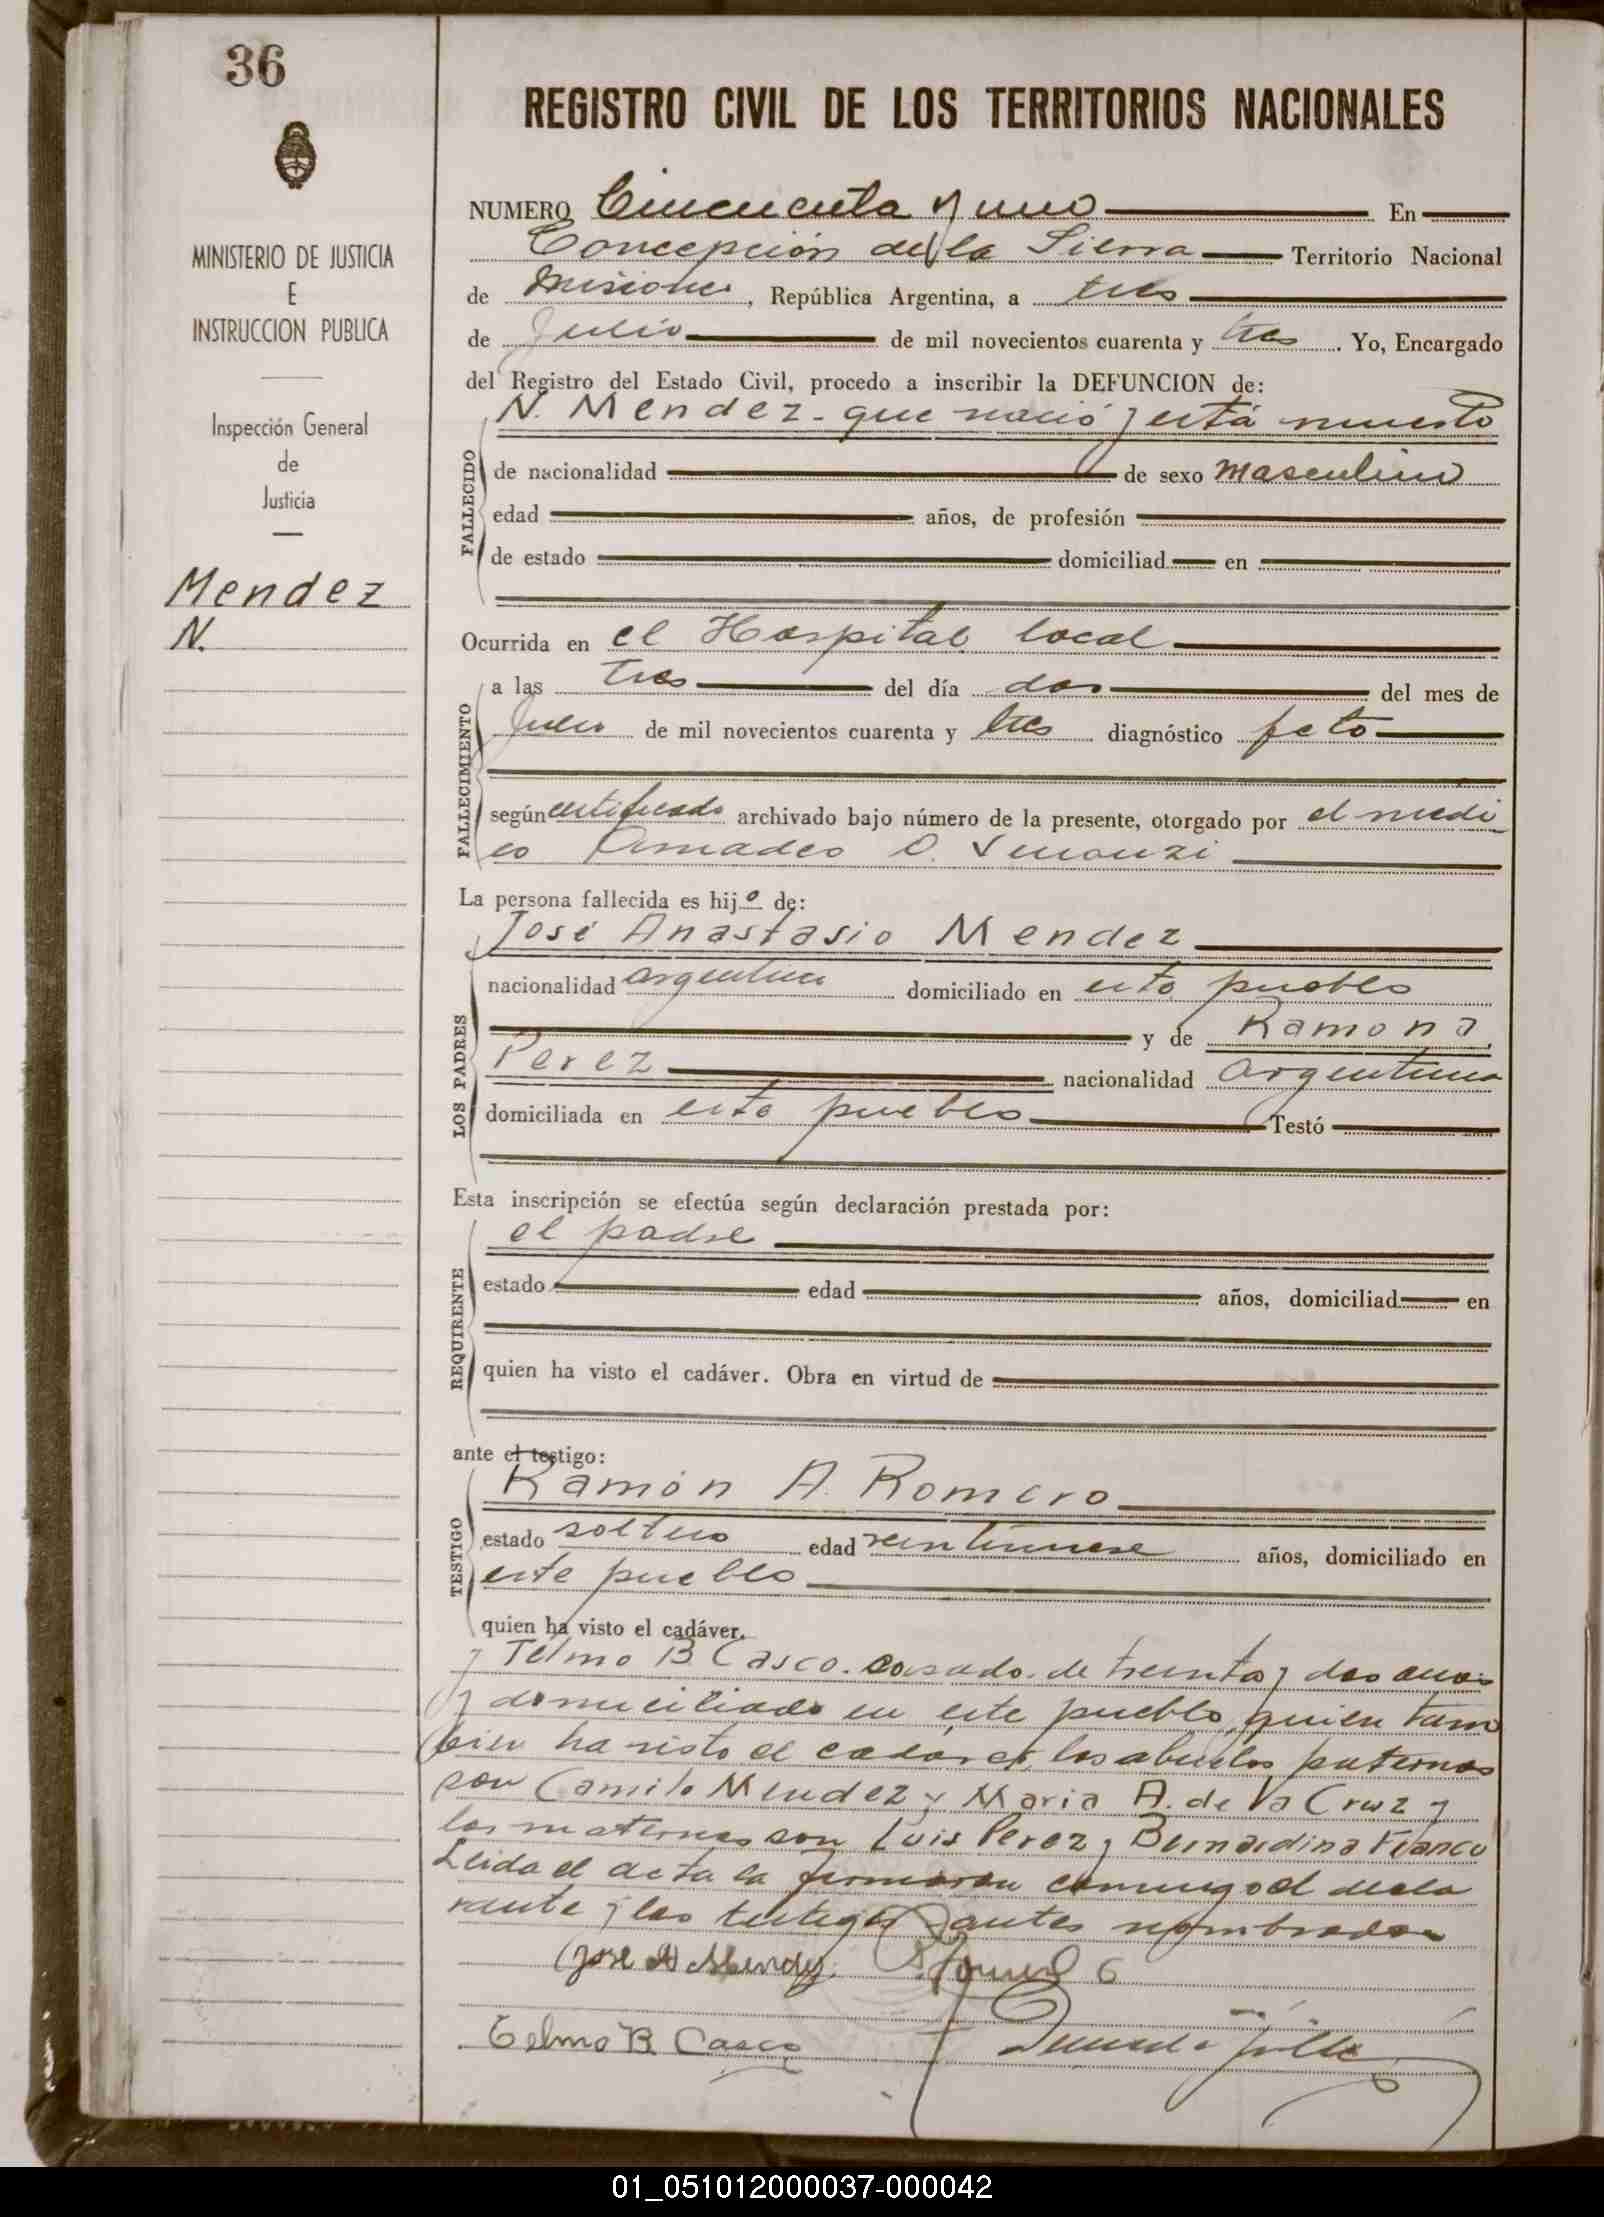 36
REGISTRO CIVIL DE LOS TERRITORIOS NACIONALES
MINISTERIO DE JUSTICIA
E
INSTRUCCION PUBLICA
Inspección General
de
Justicia
Mendez
N.
NUMERO Cincuenta y uno En
Concepción de la Sierra Territorio Nacional
de Misiones, República Argentina, a tres
de Julio de mil novecientos cuarenta y tres. Yo, Encargado
del Registro del Estado Civil, procedo a inscribir la DEFUNCION de:
N. Mendez - que nació y está muerto
FALLECIDO
de nacionalidad de sexo masculino
edad años, de profesión
de estado domiciliad en
Ocurrida en el Hospital local
FALLECIMIENTO
a las tres del día dos del mes de
Julio de mil novecientos cuarenta y tres diagnóstico feto
según certificado archivado bajo número de la presente, otorgado por el médi
co Amadeo O.
La persona fallecida es hijo de:
José Anastasio Mendez
LOS PADRES
nacionalidad argentino domiciliado en este pueblo
y de Ramona
Perez nacionalidad argentina
domiciliada en este pueblo Testó
Esta inscripción se efectúa según declaración prestada por:
el padre
REQUIRENTE
estado edad años, domiciliad en
quien ha visto el cadáver. Obra en virtud de
ante el testigo:
Ramón A. Romero
TESTIGO
estado soltero edad años, domiciliado en
este pueblo
quien ha visto el cadáver.
y Telmo B. Casco. casado. de treinta y dos anos
y domiciliado en este pueblo, quien tam
bien ha visto el cadáver, los abuelos paternos
son Camilo Mendez y Maria A. de la Cruz y
los maternos son Luis Perez y Bernardina Franco
Leida el acta la firmaron conmigo el decla
rante y los testigos antes nombrados
José A Mendez. Romero
Telmo B. Casco
01_051012000037-000042